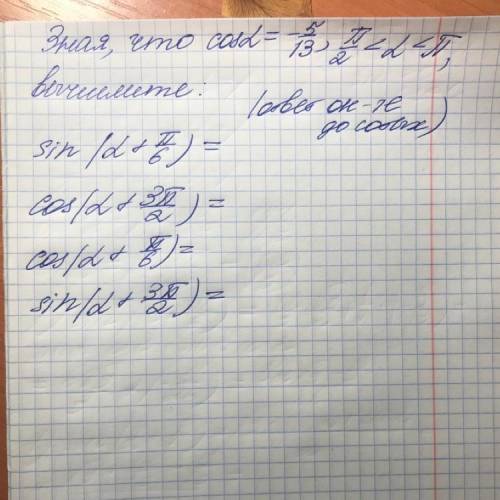 Зная, что cosα = -5/13, π/2 < α < π,
вычислите:
(ответ ок-те
до сотых)
sin(α + π/6) =
cos(α + 3π/2) =
cos(α + π/6) =
sin(α + 3π/2) =